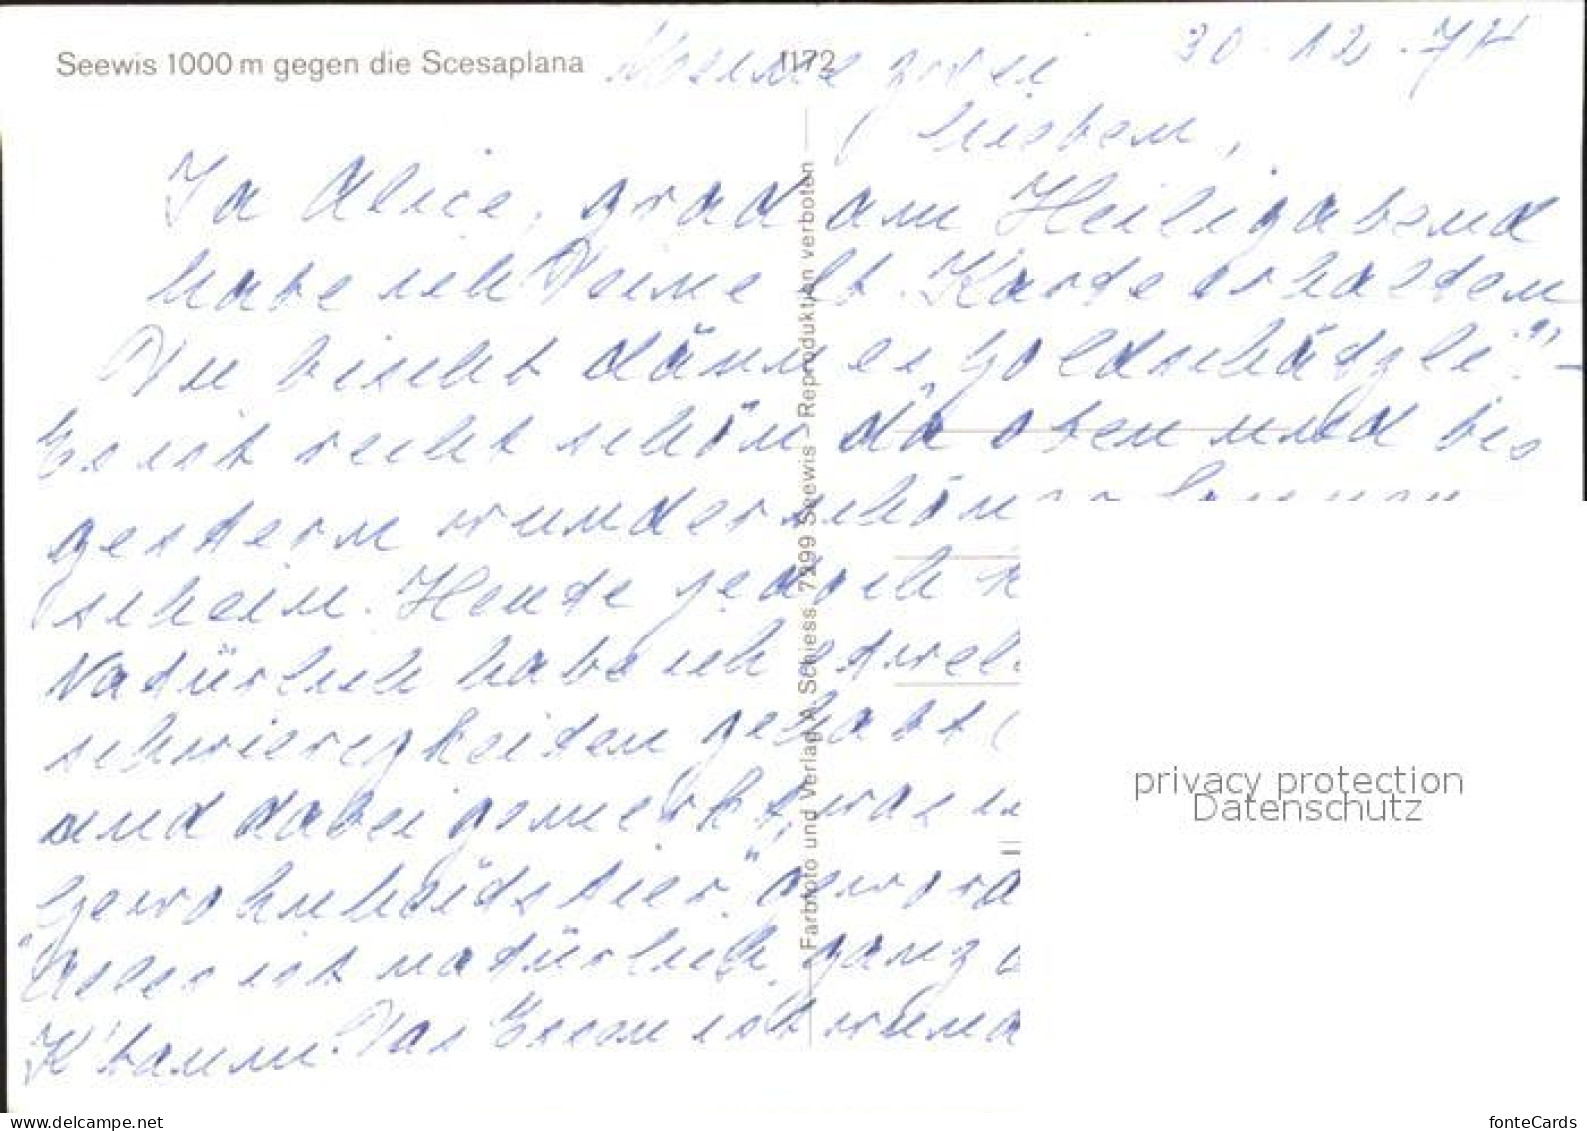 Seewis 1000 m gegen die Scesaplana
1172
30.12.74
Meine zwei
lieben,
Ja Alice, grad am Heiligabend
habe ich Deine lb. Karte erhalten
Du bischt dänn es Goldschätzli". -
Es ist recht schön da oben und bis
gestern wunderschön
schein. Heute jedoch
Natürlich habe ich
schwierigkeiten gehabt (
und dabei gemerkt, was
Gewohnheitstier"
Aber ist natürlich ganz
K'baum. Das Essen ist
Farbfoto und Verlag A. Schiess 7299 Seewis - Reproduktion verboten
privacy protection
Datenschutz
www.delcampe.net
fonteCards